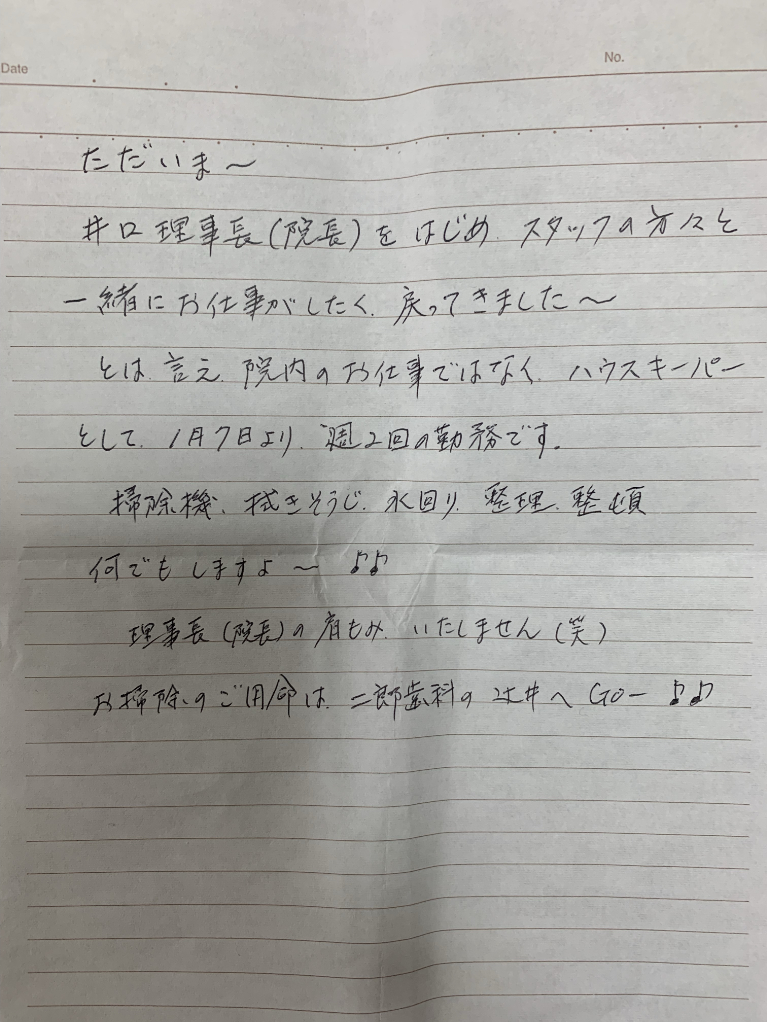 Date
No.
ただいま〜
井口理事長(院長)をはじめ、スタッフの方々と
一緒にお仕事がしたく、戻ってきました〜
とは、言え、院内のお仕事ではなく、ハウスキーパー
として、1月7日より、週2回の勤務です。
掃除機、拭きそうじ、水回り、整理、整頓
何でもしますよ〜 ♪♪
理事長(院長)の肩もみ、いたしません(笑)
お掃除のご用命は、二郎歯科の辻井へGOー ♪♪